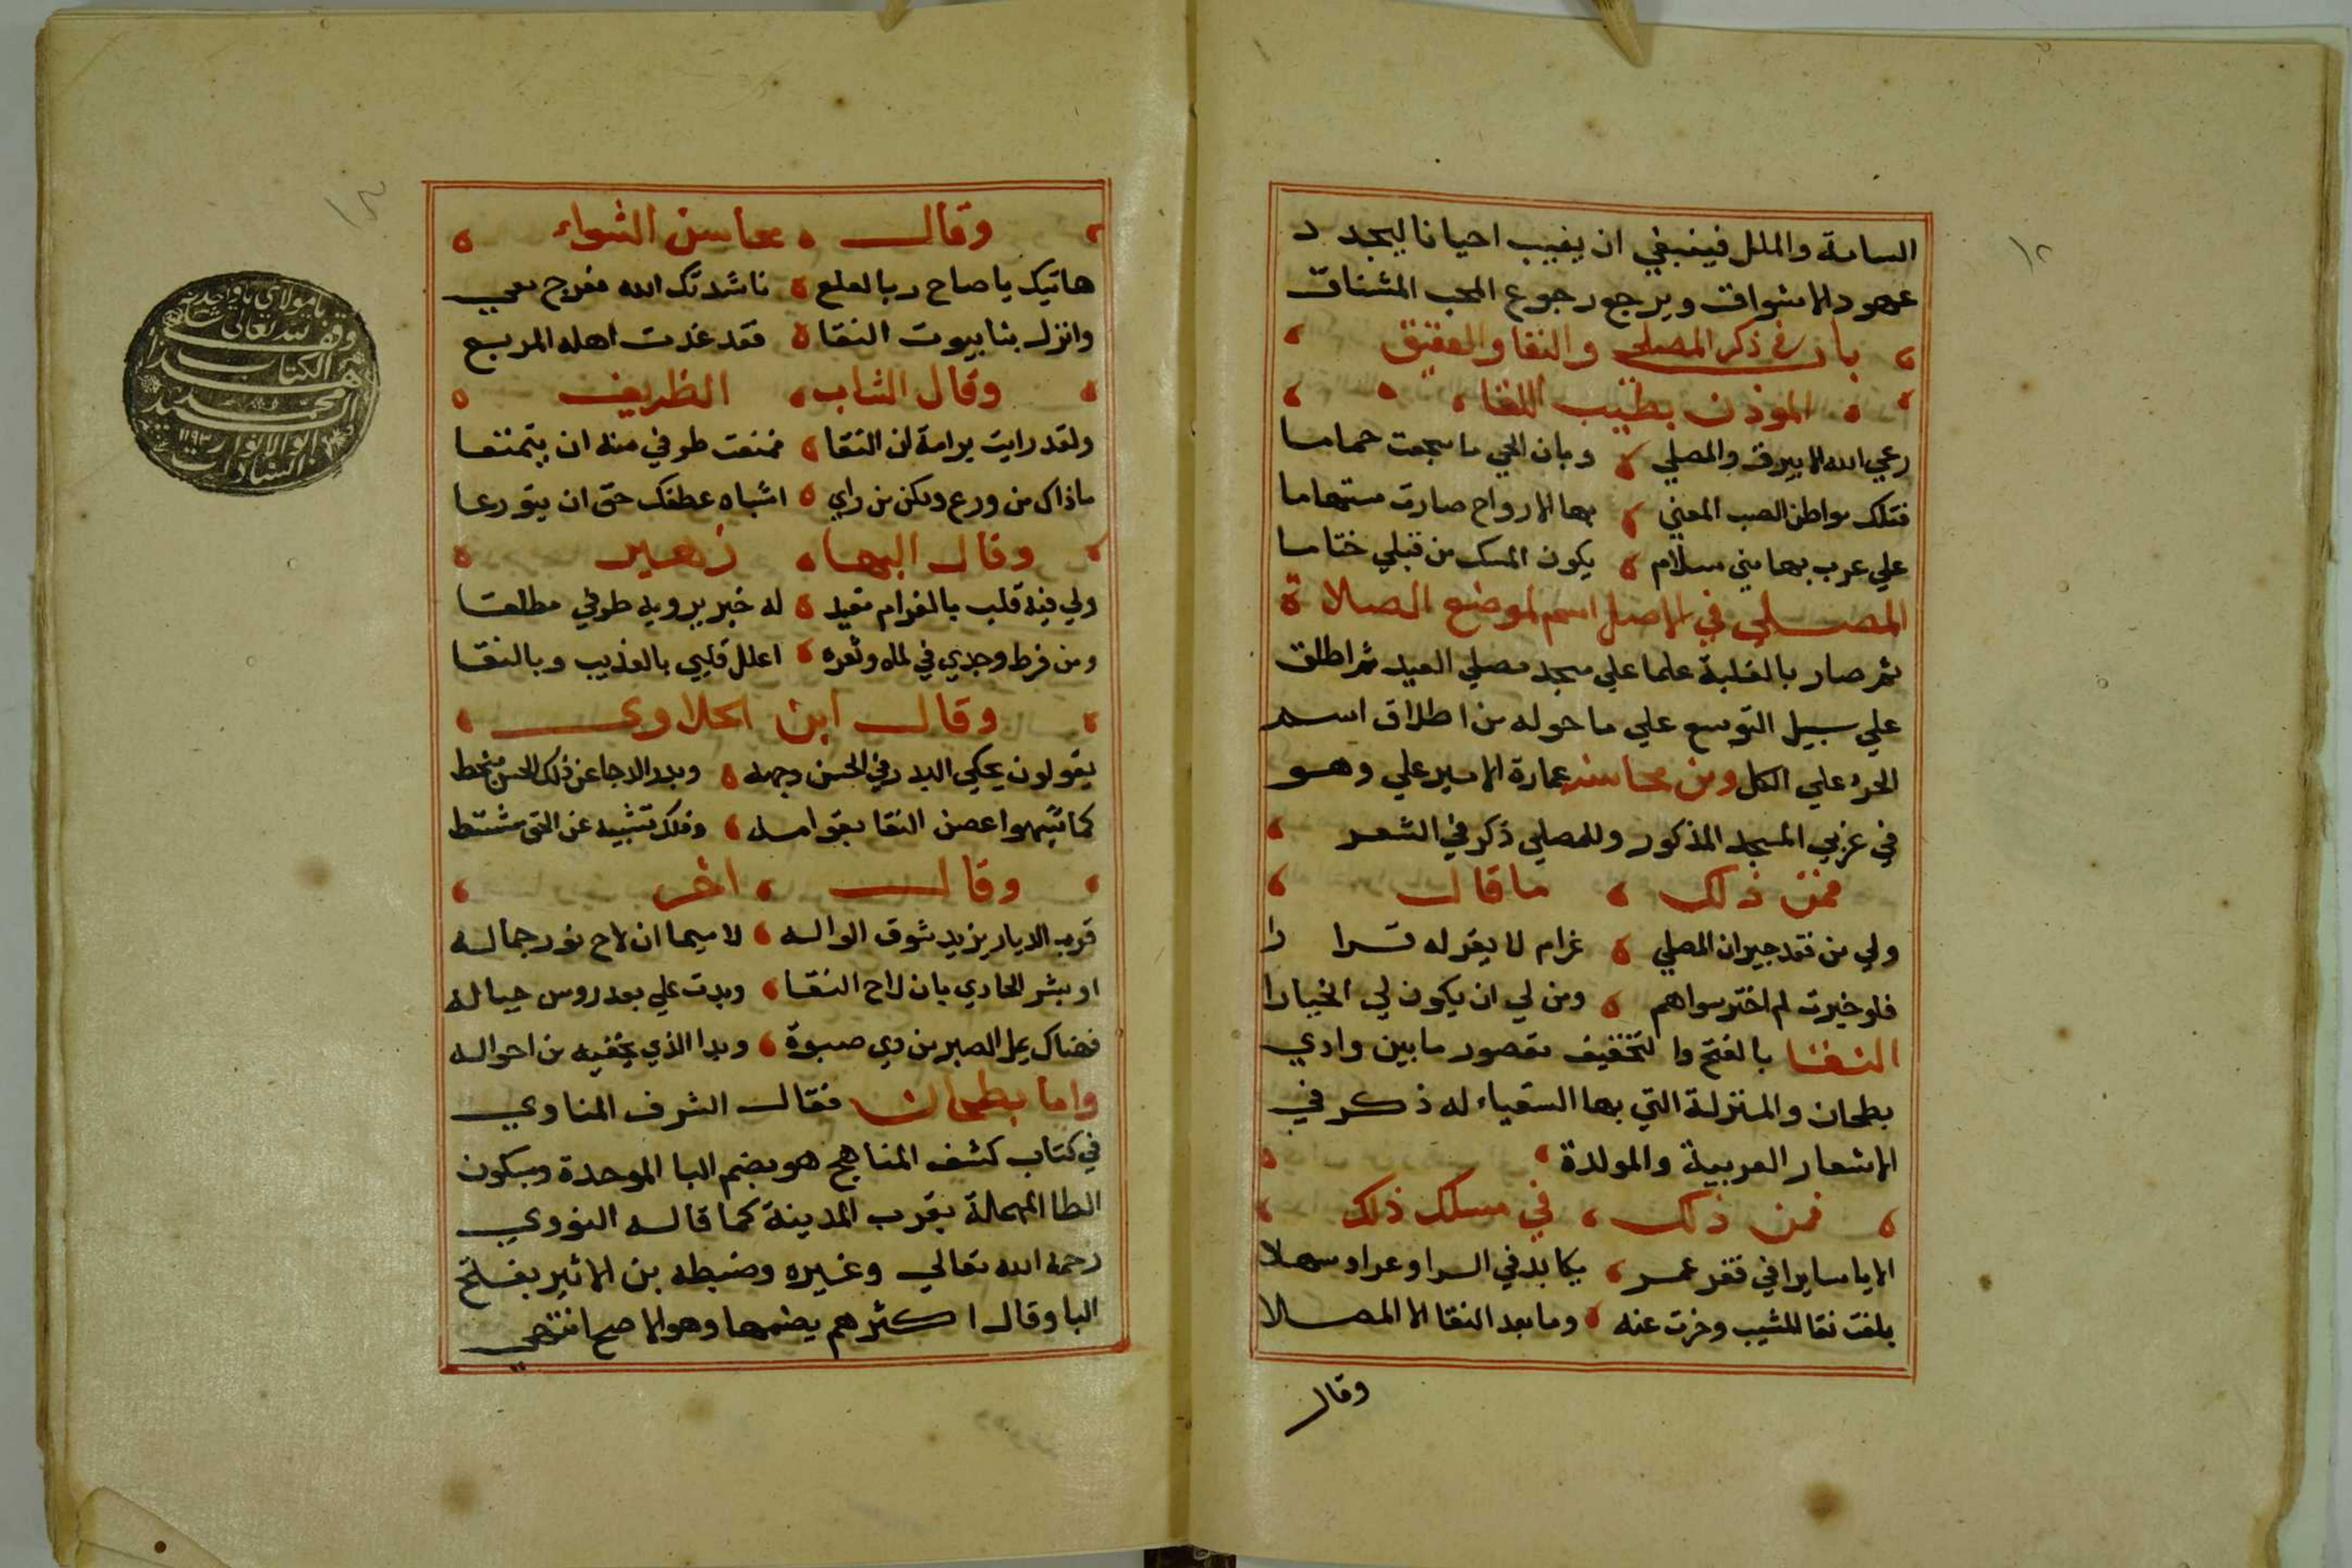 السامة والملل فينبغي ان يغيب احيانا ليجدد
عهود الاشواق ويرجع رجوع المحب المشتاق
باب في ذكر المصلي والنقا والعقيق
الموذن بطيب اللقا
رعي الله الابيرق والمصلي وبان الحي ما سجعت حماما
فتلك مواطن الصب المعني بها الارواح صارت مستهاما
علي عرب بها مني سلام يكون المسك من قبلي ختاما
المصلي في الاصل اسم لموضع الصلاة
ثم صار بالغلبة علما علي مسجد مصلي العيد ثم اطلق
علي سبيل التوسع علي ما حوله من اطلاق اسم
الجزء علي الكل ومن محاسنه عمارة الامير علي وهو
في غربي المسجد المذكور وللمصلي ذكر في الشعر
فمن ذلك ما قال
ولي من فقد جيران المصلي غرام لا يقر له قرارا
فلو خيرت لم اختر سواهم ومن لي ان يكون لي الخيارا
النقا بالفتح والتخفيف مقصور ما بين وادي
بطحان والمنزلة التي بها السقياء له ذكر في
الاشعار العربية والمولدة
فمن ذلك في مسلك ذلك
الا يا سايرا في قفر عمر يكابد في السرا وعرا وسهلا
بلغت نقا المشيب وخزت عنه وما بعد النقا الا المصلا
وقال
وقال محاسن الشواء
هاتيك يا صاح ربا لعلع ناشدتك الله فعرج معي
وانزل بنا بيوت النقا فقد غدت اهله المربع
وقال الشاب الظريف
ولقد رايت برامة لن النقا فمنعت طرفي منه ان يتمتعا
ماذاك من ورع ولكن من راي اشباه عطفك حق ان يتورعا
وقال البها زهير
ولي فيه قلب بالغرام مقيد له خبر يرويه طرفي مطلقا
ومن فرط وجدي في لماه وثغره اعلل قلبي بالعذيب وبالنقا
وقال ابن الحلاوي
يقولون يحكي البدر في الحسن وجهه وبدر الدجا عن ذلك الحسن منحط
كما شبهوا غصن النقا بقوامه
وقال اخر
قرب الديار يزيد شوق الواله لاسيما ان لاح نور جماله
او بشر الحادي بان لاح النقا وبدت علي بعد روس جباله
فهناك عيل الصبر من ذي صبوة وبدا الذي يخفيه من احواله
واما بطحان فقال الشرف المناوي
في كتاب كشف المناهج هو بضم البا الموحدة وسكون
الطا المهملة بقرب المدينة كما قاله النووي
رحمه الله تعالي وغيره وضبطه بن الاثير بفتح
البا وقال اكثرهم يضمها وهو الاصح انتهي
يا مولاي يا واحد
وقف لله تعالى
هذا الكتاب
السيد محمد
ابو الانوار
السادات ١١٩٣